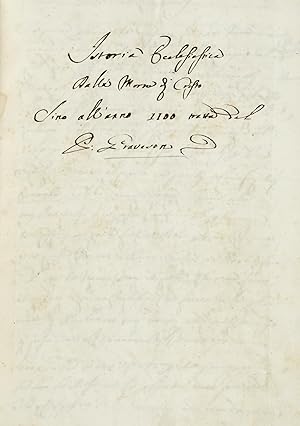 Istoria Eclesiastica
Dalla Morte di Cristo
Sino all'anno 1100 trata dal
P. Graveson